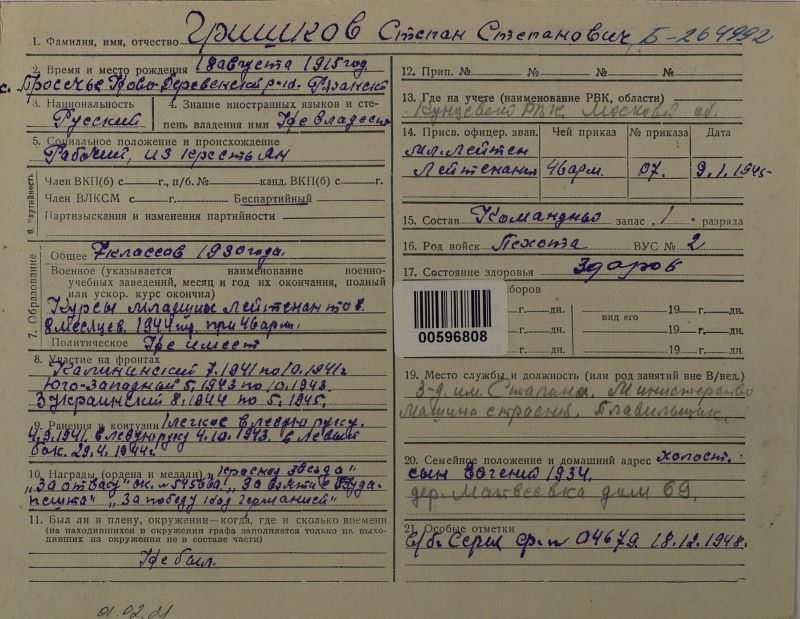 1. Фамилия, имя, отчество Гришков Степан Степанович, Б-264992
2. Время и место рождения 18 августа 1915 год
с. Просечье Ново-Деревенский р-н. Рязанск
3. Национальность Русский
4. Знание иностранных языков и степень владения ими Не владеет
5. Социальное положение и происхождение
Рабочий, из крестьян
6. Партийность
Член ВКП(б) с г., п/б. № канд. ВКП(б) с г.
Член ВЛКСМ с г. Беспартийный
Партвзыскания и изменения партийности
7. Образование
Общее 7 классов 1930 года.
Военное (указывается наименование военно-
учебных заведений, месяц и год их окончания, полный
или ускор. курс окончил)
Курсы младших лейтенантов.
8 месяцев. 1944 при 46 арм.
Политическое Не имеет
8. Участие на фронтах
Калининский 7.1941 по 10.1941г
Юго-Западный 5.1943 по 10.1943.
3 Украинский 8.1944 по 5.1945.
9. Ранения и контузии 1 легкое в левую руку.
4.9.1941 в левую руку 4.10.1943. в левый
бок. 29.4.1944г.
10. Награды (ордена и медали) „Красная звезда"
„За отвагу" „За взятие Буда-
пешта" „За победу над Германией"
11. Был ли в плену, окружении — когда, где и сколько времени
(на находившихся в окружении графа заполняется только на выхо-
дивших из окружения не в составе части)
Не был.
12. Прип. № № № №
13. Где на учете (наименование РВК, области)
Кунцевский РВК, Москов об.
14. Присв. офицер. зван. Чей приказ № приказа Дата
мл. Лейтен
Лейтенанта 46 арм. 07. 9.1.1945
15. Состав Командный запас „1" разряда
16. Род войск Пехота ВУС № 2
17. Состояние здоровья Здоров
боров
г. дн. 19 г. дн.
вид его
г. дн. 19 г. дн.
г. дн. 19 г. дн
00596808
19. Место службы и должность (или род занятий вне В/вед.)
З-д. им. Сталина. Министерство
Машиностроения. Плавильщик
20. Семейное положение и домашний адрес холост.
сын Евгений 1934.
дер. Матвеевка дом 69.
21. Особые отметки
04679. 18.12.1948.
01.02.21